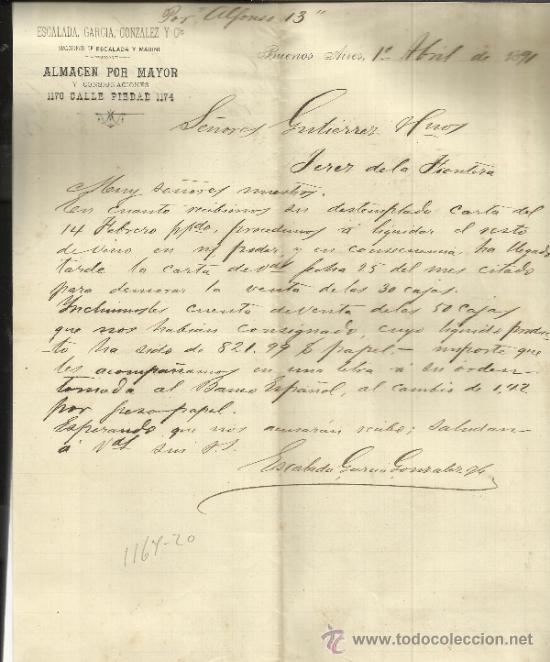 Por "Alfonso 13"
ESCALADA, GARCIA, GONZALEZ Y Cª
SUCESORES DE ESCALADA Y MARINI
ALMACEN POR MAYOR
Y CONSIGNACIONES
1170 CALLE PIEDAD 1174
Buenos Aires, 1º Abril de 1891
Señores Gutierrez Hnos
Jerez de la Frontera
Muy señores nuestros.
En cuanto recibimos su destemplada carta del
14 Febrero ppdo, procedimos á liquidar el resto
de vino en n/ poder, y en consecuencia, ha llegado
tarde la carta de Vds fecha 25 del mes citado
para demorar la venta de las 30 cajas.
Incluimosles cuenta de venta de las 50 cajas
que nos habian consignado, cuyo liquido produc-
to ha sido de 821.97 $ papel.- importe que
les acompañamos en una letra á su orden
tomada al Banco Español, al cambio de 1,42
por peso papel.
Esperando que nos acusarán recibo; saludan
á Vds sus S.S.
Escalada Garcia Gonzalez y Ca
1164-20
www.todocoleccion.net